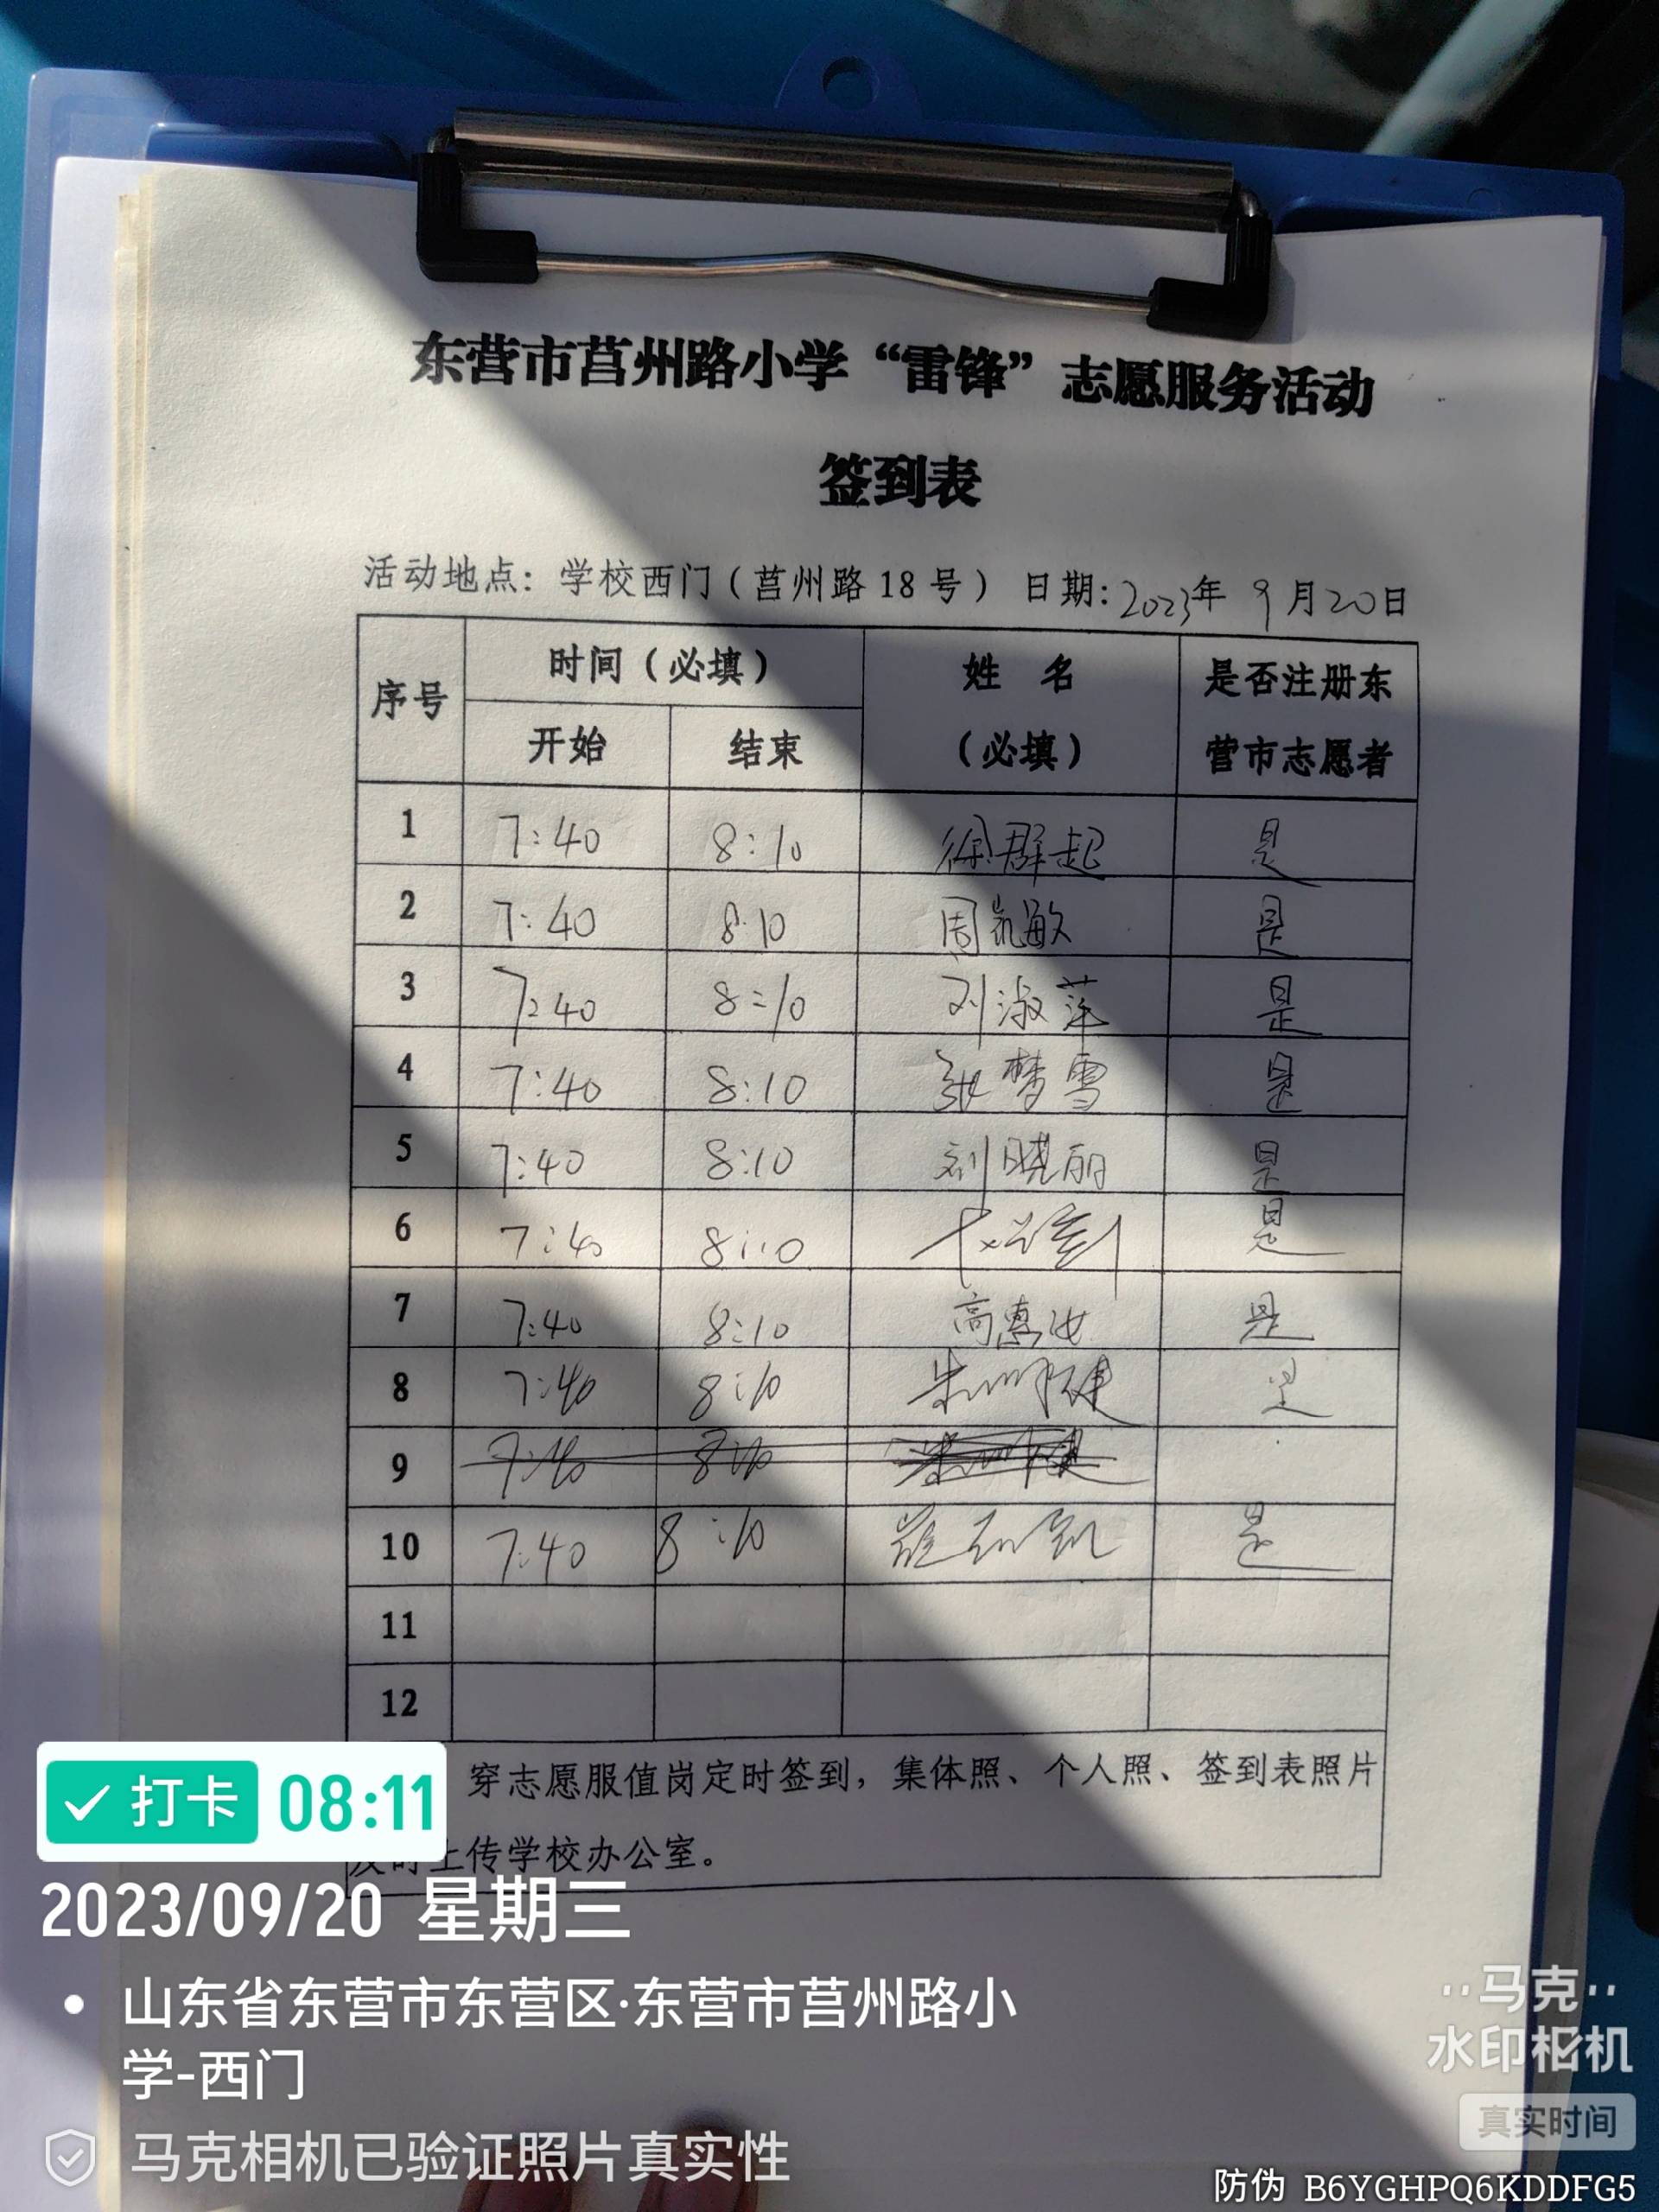 东营市莒州路小学“雷锋”志愿服务活动
签到表
活动地点：学校西门（莒州路18号） 日期：2023年 9月20日
序号 时间（必填） 姓 名（必填） 是否注册东营市志愿者
开始 结束
1 7:40 8:10 徐群起 是
2 7:40 8:10 周凯敏 是
3 7:40 8:10 刘淑萍 是
4 7:40 8:10 张梦雪 是
5 7:40 8:10 刘晓丽 是
6 7:40 8:10 是
7 7:40 8:10 高惠 是
8 7:40 8:10 是
9 7:40 8:10
10 7:40 8:10 是
11
12
穿志愿服值岗定时签到，集体照、个人照、签到表照片
及时上传学校办公室。
打卡 08:11
2023/09/20 星期三
山东省东营市东营区·东营市莒州路小
学-西门
马克相机已验证照片真实性
马克
水印相机
真实时间
防伪 B6YGHPQ6KDDFG5